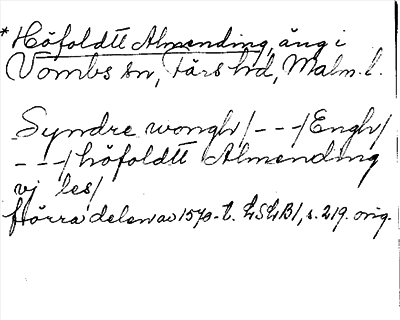 *Höfoldtt Almending, äng i
Vombs sn, Färs hd, Malm. l.
Syndre wongh / - - -/ Engh /
- - -/ höfoldtt Almending
vj les /
förra delen av 1570-t. LSLB1, s. 219. orig.